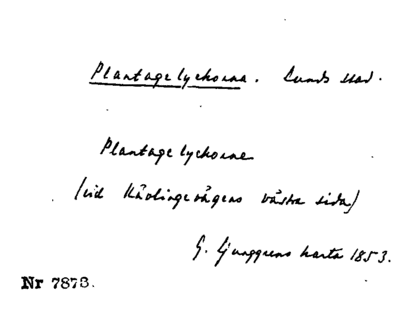 Plantagelyckorna. Lunds stad.
Plantagelyckorne
(vid Kävlingevägens västra sida)
G. Ljunggrens karta 1853.
Nr 7873.